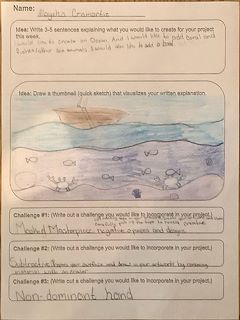 Name:
Idea: Write 3-5 sentences explaining what you would like to create for your project this week.
I would like to create an Ocean. And I would like to add coral and
I would also like to add a boat.
Idea: Draw a thumbnail (quick sketch) that visualizes your written explanation.
Challenge #1: (Write out a challenge you would like to incorporate in your project.)
Masked Masterpiece negative spaces and designs
Challenge #2: (Write out a challenge you would like to incorporate in your project.)
Subtractive your surface and in your artwork by removing
material with an eraser
Challenge #3: (Write out a challenge you would like to incorporate in your project.)
Non-dominant hand